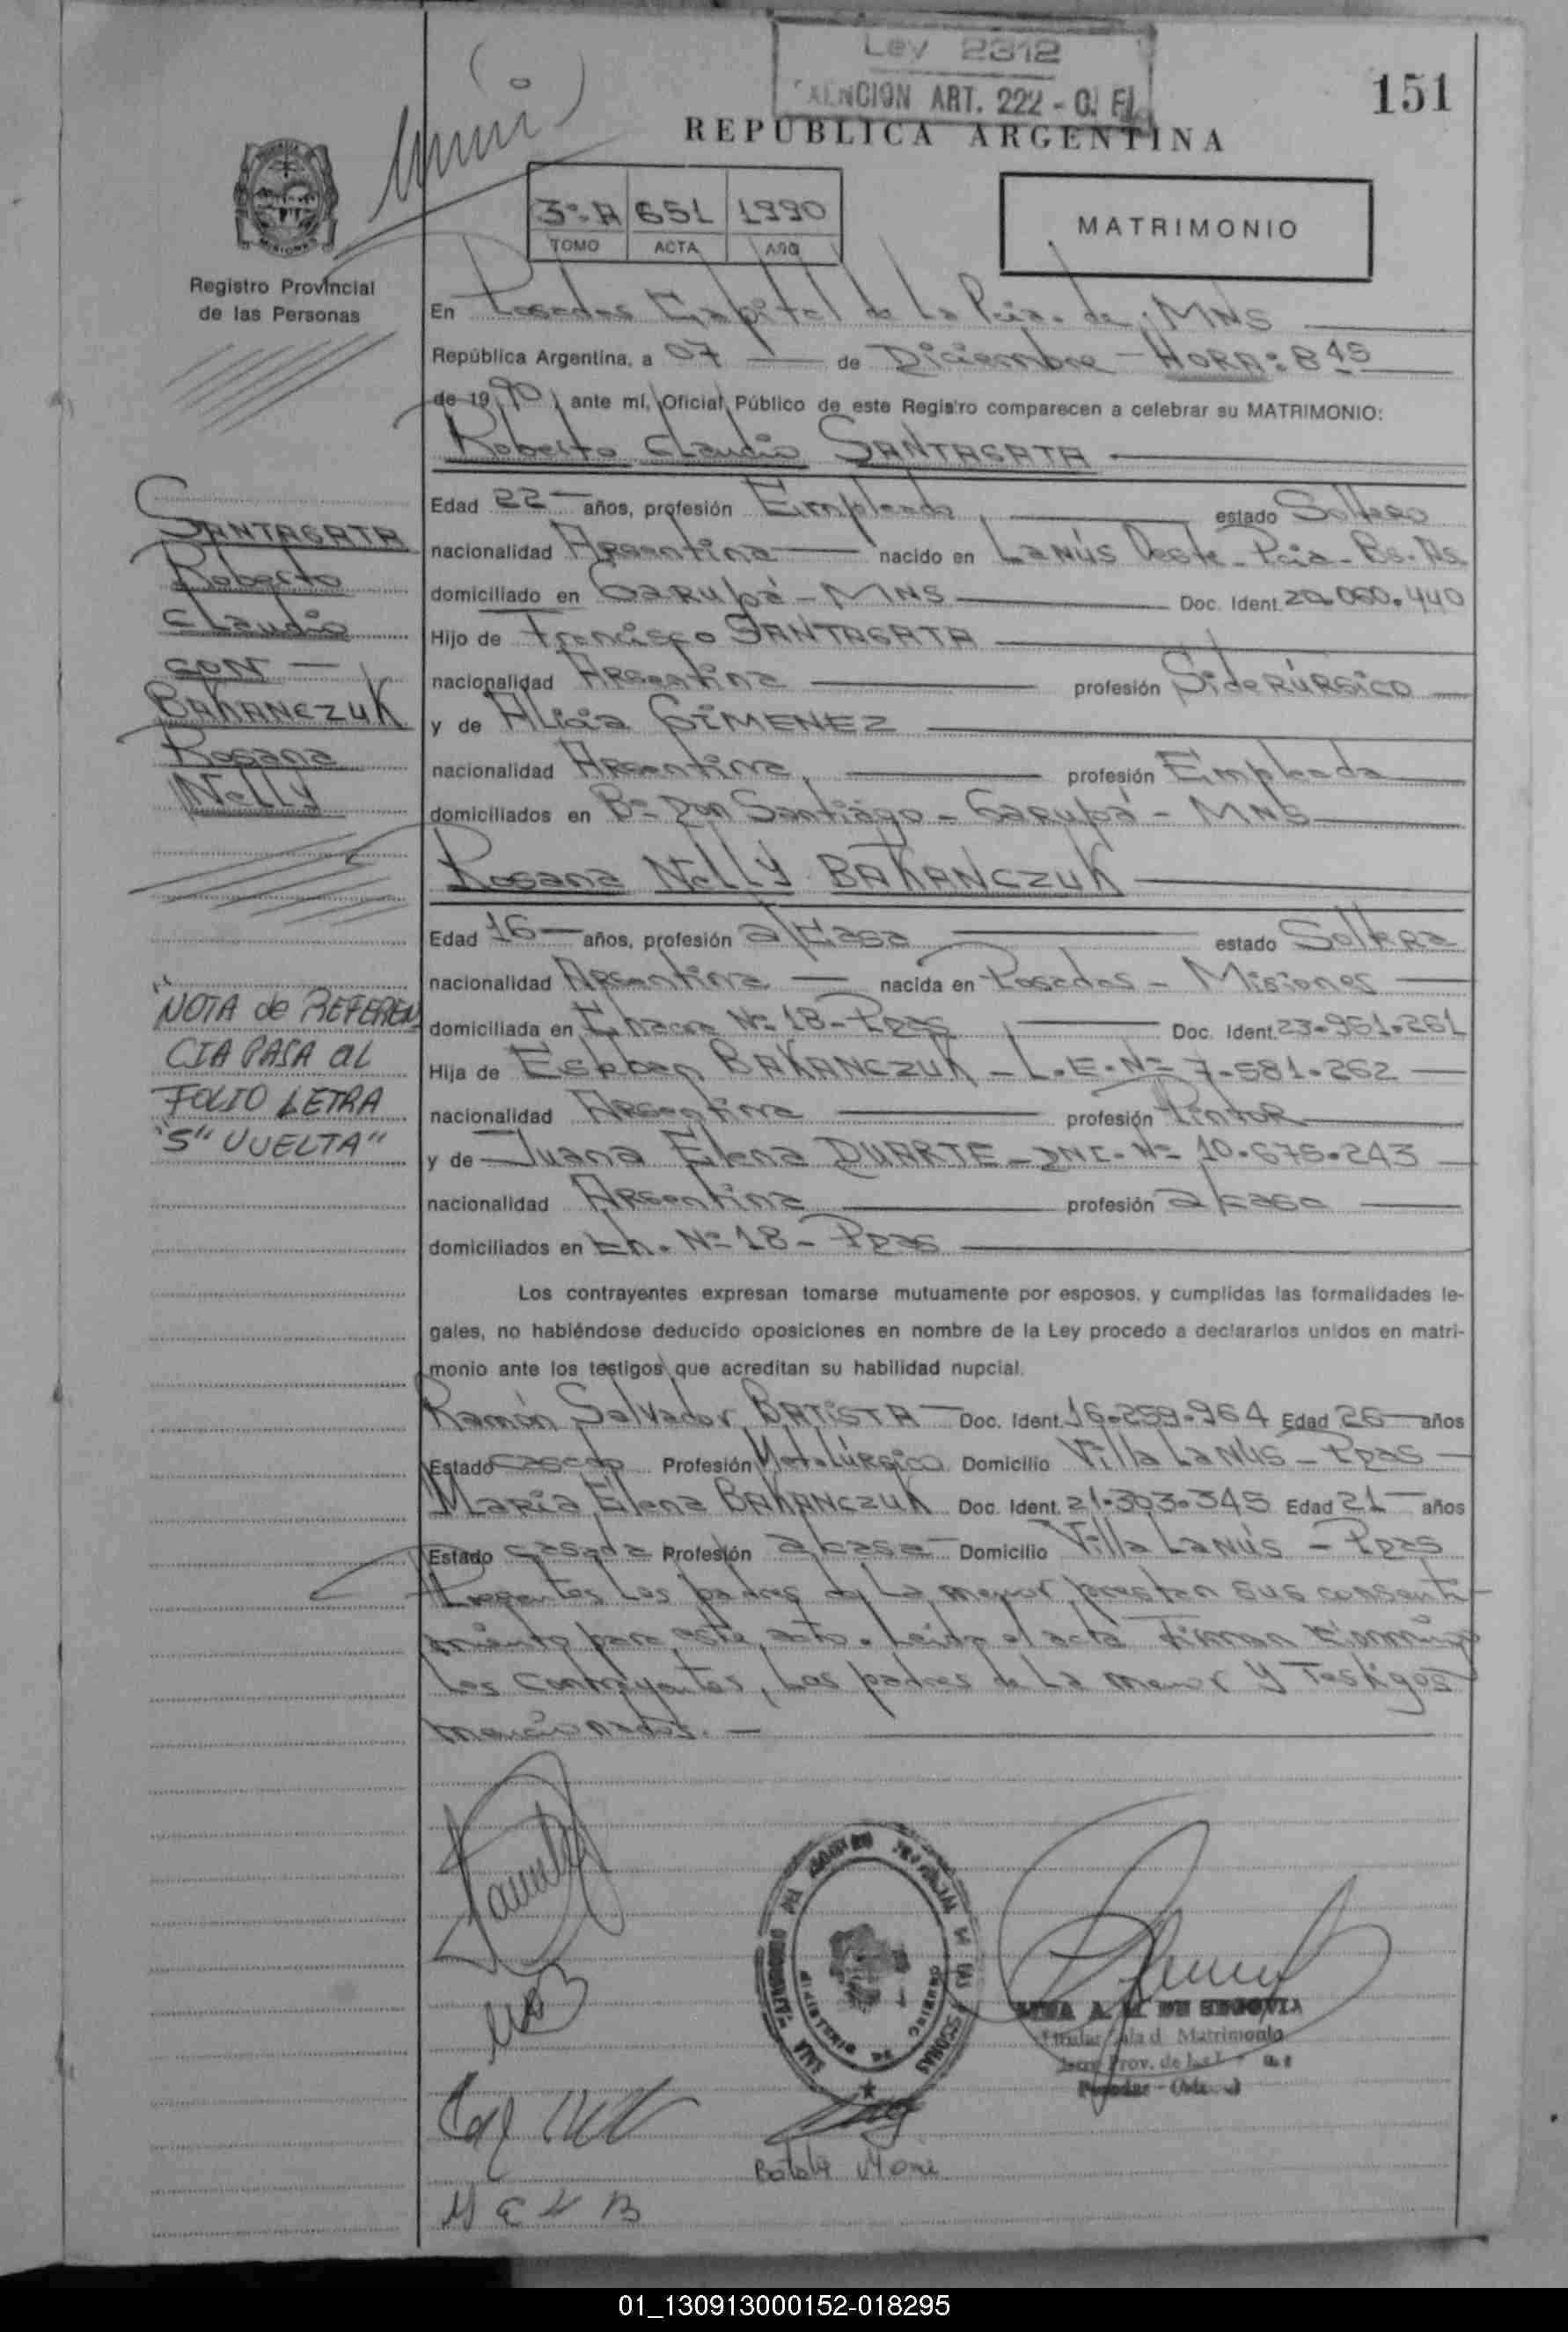 Ley 2312
EXENCION ART. 222 - C. F.
151
REPUBLICA ARGENTINA
3º-A 651 1990
TOMO ACTA AÑO
MATRIMONIO
Registro Provincial
de las Personas
En Posadas Capital de La Pcia. de MNS
República Argentina, a 07 de Diciembre - HORA: 8 45
de 1990, ante mí, Oficial Público de este Registro comparecen a celebrar su MATRIMONIO:
Roberto Claudio SANTAGATA
SANTAGATA
Roberto
Claudio
CON
BAKANCZUK
Rosana
Nelly
Edad 22 años, profesión Empleado estado Soltero
nacionalidad Argentina nacido en Lanús Oeste - Pcia - Bs. As
domiciliado en Garupá - MNS Doc. Ident. 20.060.440
Hijo de Francisco SANTAGATA
nacionalidad Argentina profesión Siderúrgico
y de Alicia GIMENEZ
nacionalidad Argentina profesión Empleada
domiciliados en Bº Don Santiago - Garupá - MNS
Rosana Nelly BAKANCZUK
Edad 16 años, profesión a/casa estado Soltera
nacionalidad Argentina nacida en Posadas - Misiones
domiciliada en Chacra Nº 18 - Ppas Doc. Ident. 23.951.261
Hija de Esteban BAKANCZUK - L.E. Nº 7.581.262
nacionalidad Argentina profesión Pintor
y de Juana Elena DUARTE - DNI. Nº 10.675.243
nacionalidad Argentina profesión a/casa
domiciliados en Ch. Nº 18 - Ppas
"NOTA de REFEREN
CIA PASA al
FOLIO LETRA
"S" VUELTA"
Los contrayentes expresan tomarse mutuamente por esposos, y cumplidas las formalidades le-
gales, no habiéndose deducido oposiciones en nombre de la Ley procedo a declararlos unidos en matri-
monio ante los testigos que acreditan su habilidad nupcial.
Ramón Salvador BATISTA Doc. Ident. 16.259.964 Edad 26 años
Estado casado Profesión Metalúrgico Domicilio Villa Lanús - Ppas
María Elena BAKANCZUK Doc. Ident. 21.303.345 Edad 21 años
Estado casada Profesión a/casa Domicilio Villa Lanús - Ppas
Presentes los padres de La menor prestan sus consenti-
miento para este acto. Leida el acta Firman conmigo
Los contrayentes, Los padres de La menor y Testigos
mencionados.
A. DE SEGOVIA
Titular Sala d. Matrimonio
Prov. de las
Posadas
M E V B
01_130913000152-018295